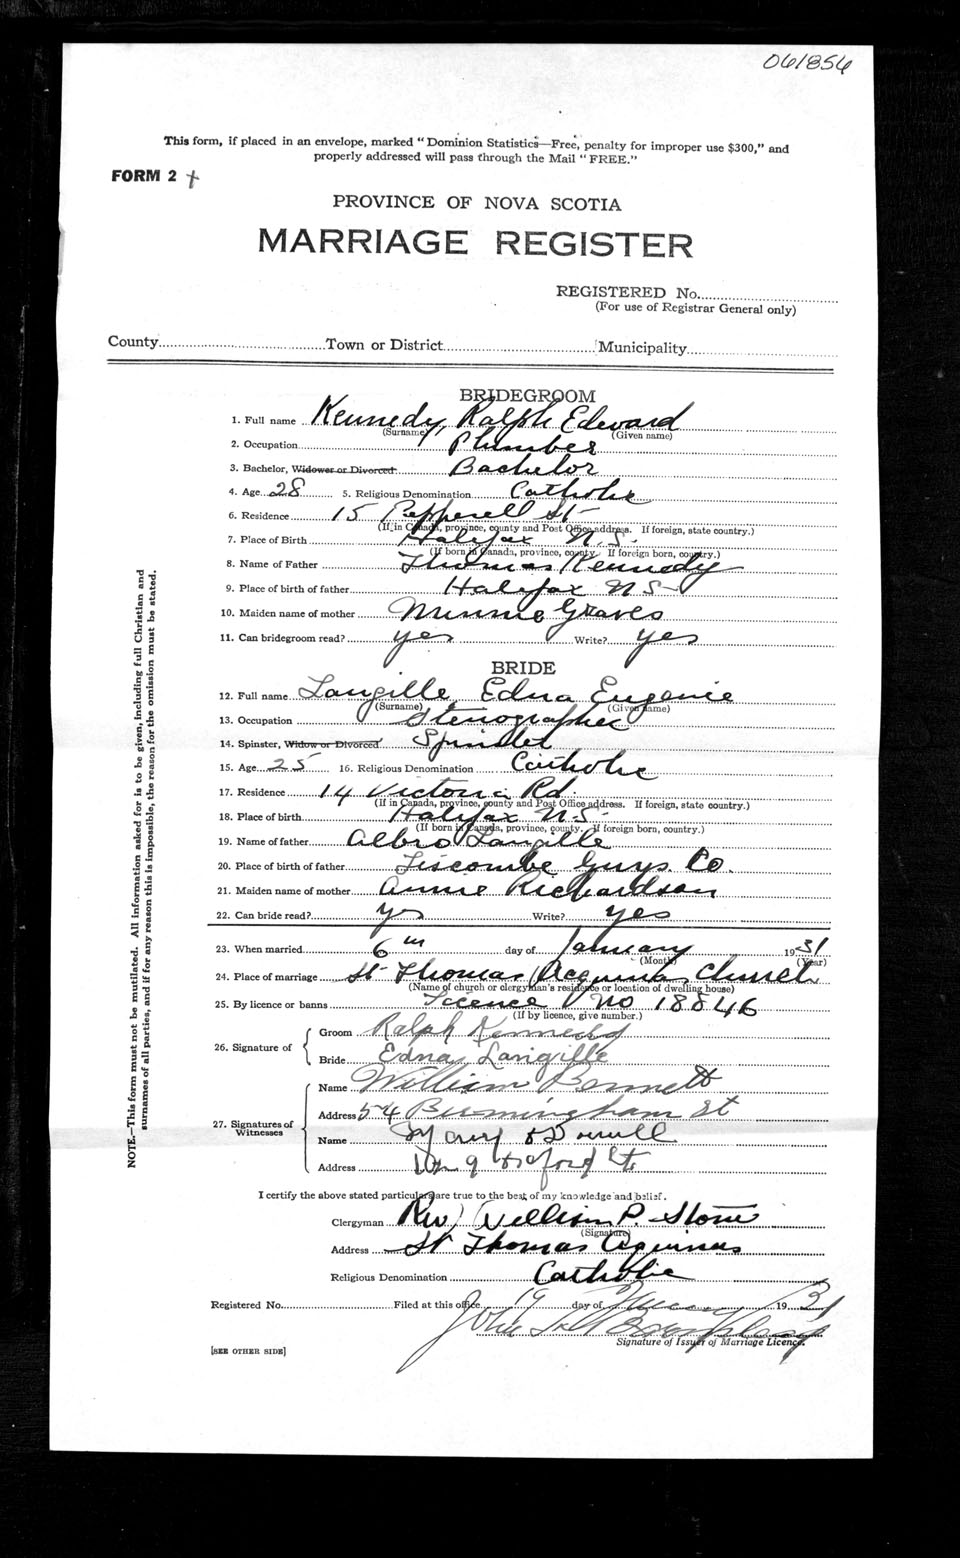 061856
This form, if placed in an envelope, marked "Dominion Statistics—Free, penalty for improper use $300," and
properly addressed will pass through the Mail "FREE."
FORM 2 +
PROVINCE OF NOVA SCOTIA
MARRIAGE REGISTER
REGISTERED No.
(For use of Registrar General only)
County Town or District Municipality
BRIDEGROOM
1. Full name Kennedy, Ralph Edward
(Surname) (Given name)
2. Occupation Plumber
3. Bachelor, Widower or Divorced Bachelor
4. Age 28 5. Religious Denomination Catholic
6. Residence 15 Pepperell St
(If in Canada, province, county and Post Office address. If foreign, state country.)
7. Place of Birth Halifax N.S.
(If born in Canada, province, county. If foreign born, country.)
8. Name of Father Thomas Kennedy
9. Place of birth of father Halifax N S
10. Maiden name of mother Minnie Graves
11. Can bridegroom read? yes Write? yes
BRIDE
12. Full name Langille, Edna Eugenie
(Surname) (Given name)
13. Occupation Stenographer
14. Spinster, Widow or Divorced Spinster
15. Age 25 16. Religious Denomination Catholic
17. Residence 14 Victoria Rd.
(If in Canada, province, county and Post Office address. If foreign, state country.)
18. Place of birth Halifax N.S.
(If born in Canada, province, county. If foreign born, country.)
19. Name of father Albro Langille
20. Place of birth of father Liscombe Guys. Co.
21. Maiden name of mother Annie Richardson
22. Can bride read? yes Write? yes
23. When married 6th day of January 1931
(Month) (Year)
24. Place of marriage St Thomas Acquinas Church
(Name of church or clergyman's residence or location of dwelling house)
25. By licence or banns Licence No 18846
(If by licence, give number.)
26. Signature of Groom Ralph Kennedy
Bride Edna Langille
27. Signatures of Witnesses Name William Bennett
Address 54 Birmingham St
Name
Address St.
I certify the above stated particulars are true to the best of my knowledge and belief.
Clergyman Rev William P. Stone
(Signature)
Address St Thomas Aquinas
Religious Denomination Catholic
Registered No. Filed at this office 19 day of 1931
John
Signature of Issuer of Marriage Licence.
[SEE OTHER SIDE]
NOTE.—This form must not be mutilated. All information asked for is to be given, including full Christian and
surnames of all parties, and if for any reason this is impossible, the reason for the omission must be stated.